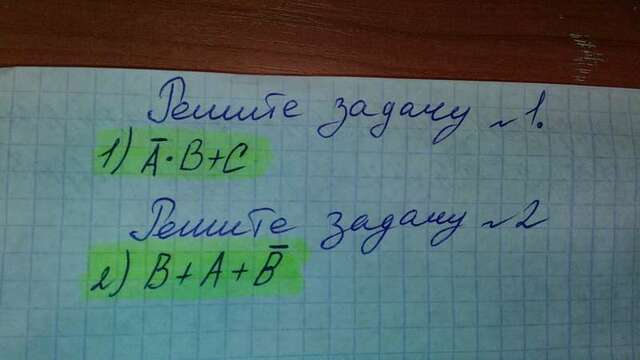 Решите задачу №1.
1) A̅·B+C
Решите задачу №2
2) B+A+B̅